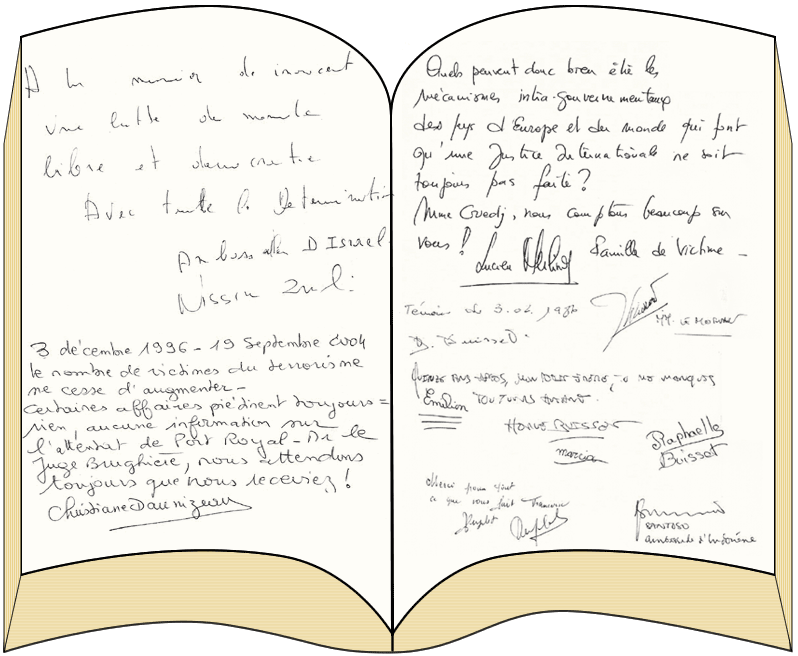 A la mémoire de innocent
une lutte du monde
libre et démocratie
Avec toute la Determination
Ambassaden D Israel
Nissim Zvili
3 décembre 1996 - 19 Septembre 2004
le nombre de victimes du terrorisme
ne cesse d'augmenter -
Certaines affaires piétinent toujours =
rien, aucune information sur
l'attentat de Port Royal - Mr le
Juge Brughière, nous attendons
toujours que nous receviez !
Christiane Daunizeau
Quels peuvent donc bien être les
mécanismes intra-gouvernementaux
des pays d'Europe et du monde qui font
qu'une Justice Internationale ne soit
toujours pas faite ?
Mme Guedj, nous comptons beaucoup sur
vous ! Lucien famille de Victime -
Témoin du 3.04.1986
MM. LE MORVAN
D. Buisset.
QUINZE ANS APRES, MON PETIT FRERE, TU ME MANQUES
Emilion TOUJOURS AUTANT.
HERVE BUISSET
marcia
Raphaelle
Buisset
Merci pour tout
ce que vous fait Françoise
SANTOSO
ambassade d'Indonésie